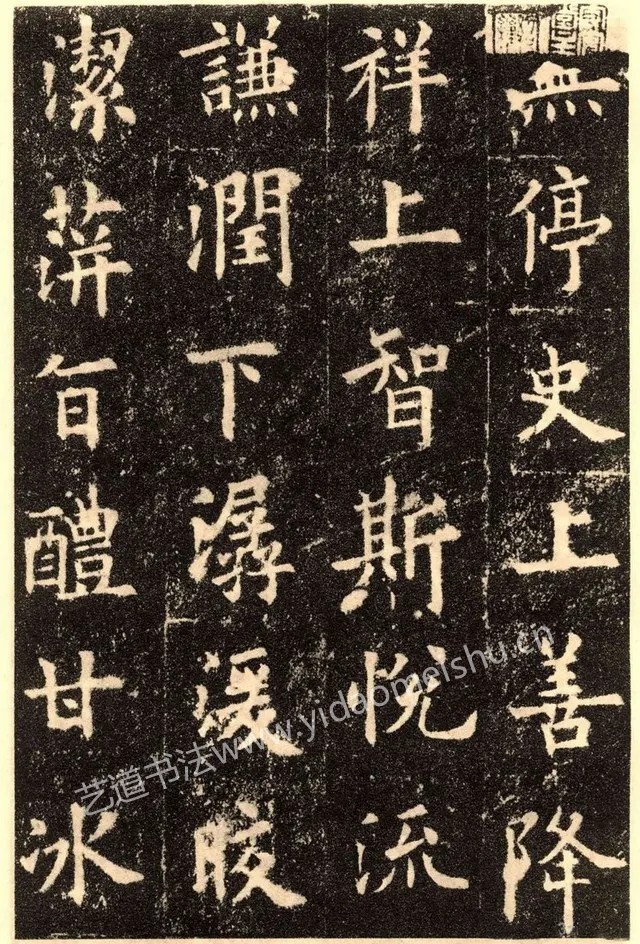 無停史上善降
祥上智斯悅流
謙潤下潺湲皎
潔蓱旨醴甘冰
艺道书法www.yidaomeishu.cn